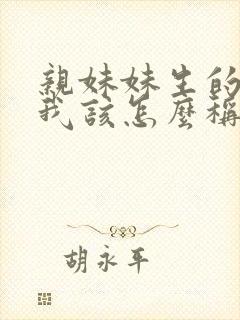 親妹妹生的
我該怎麼稱
胡永平